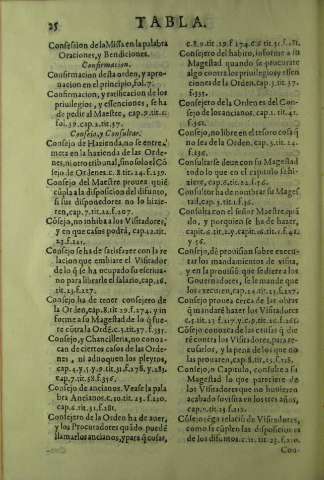 25
TABLA.
Confession de la Missa en la palabra
Oraciones, y Bendiciones.
Confirmacion.
Confirmacion desta orden, y apro-
uacion en el principio, fol. 7.
Confirmacion, y ratificacion de los
priuilegios, y essenciones, se ha
de pedir al Maestre, cap. 7. tit. c.
fol. 39. cap. 17.
Consejo, y Consultar.
Consejo de Hazienda, no se entre-
meta en la hazienda de las Orde-
nes, ni otro tribunal, sino solo el Cõ
sejo de Ordenes. c. 8. tit. 24. f. 139.
Consejo del Maestre prouea quiē
cũpla a la disposicion del difunto,
si sus disponedores no lo hizie-
ren, cap. 7. tit. 12. f. 107.
Cõsejo, no inhiba a los Visitadores,
y en que casos podrà, cap. 12. tit.
23. f. 221.
Consejo se ha de satisfazer con la re
lacion que embiare el Visitador
de lo q̃ se ha ocupado su escriua-
no para librarle el salario, cap. 16.
tit. 23. f. 227.
Consejo ha de tener consejero de
la Orden, cap. 8. tit. 19. f. 174. y in
forme a su Magestad de lo q̃ fue-
re cõtra la Ordē. c. 3. tit. 37. f. 331.
Consejo, y Chancilleria, no conoz-
can de ciertos casos de las Orde-
nes, ni aduoquen los pleytos,
cap. 4. y 5. y 9. tit. 31. f. 278. y 281.
cap. 7. tit. 38. f. 356.
Consejo de ancianos. Vease la pala
bra Ancianos. c. 30. tit. 23. f. 230.
cap. 6. tit. 31. f. 281.
Consejero de la Orden ha de auer,
y los Procuradores quãdo puedē
llamarlos ancianos, y para q̃ cosas,
c. 8. 9. tit. 19. f. 174. c. 6. tit. 31. f. 281.
Consejero del habito, informe a su
Magestad quando se procurare
algo contra los priuilegios, y essen
ciones de la Orden. cap. 3. tit. 37.
f. 331.
Consejero de la Orden es del Con-
sejo de los ancianos. cap. 1. tit. 41.
f. 361.
Consejo, no libre en el tesoro cosa q̃
no sea de la Orden. cap. 3. tit. 24.
f. 236.
Consultarse deue con su Magestad
todo lo que en el capitulo se hi-
ziere, cap. 6. tit. 2. f. 22.
Consultor ha de nombrar su Mages
tad, cap. 3. tit. 3. f. 26.
Consulta con el señor Maestre, quã
do, y por quien se ha de hazer,
capit. 6. tit. 2. f. 22. cap. 1. tit. 6. f. 41.
y 56.
Consejo, dè prouision sobre execu-
tar los mandamientos de visita,
y en la prouisiõ que se diere a los
Gouernadores, se le mande que
los executen, cap. 14. tit. 23. f. 227.
Consejo prouea cerca de las obras
q̃ mandarè hazer los Visitadores
c. 13. tit. 23. f. 227. y c. 9. tit. 26. f. 256.
Cõsejo conozca de las causas q̃ die
rē contra los Visitadores, para re-
cusarlos, y la pena de los que no
las prouaren, cap. 8. tit. 23. f. 218.
Consejo, o Capitulo, consulte a su
Magestad lo que pareciere de
los Visitadores que no huuieren
acabado su visita en los tres años,
cap. 9. tit. 23. f. 212.
Cõsejo tēga relaciõ de Visitadores,
como se cũplen las disposiciones
de los difuntos. c. 11. tit. 23. f. 210.
Con-